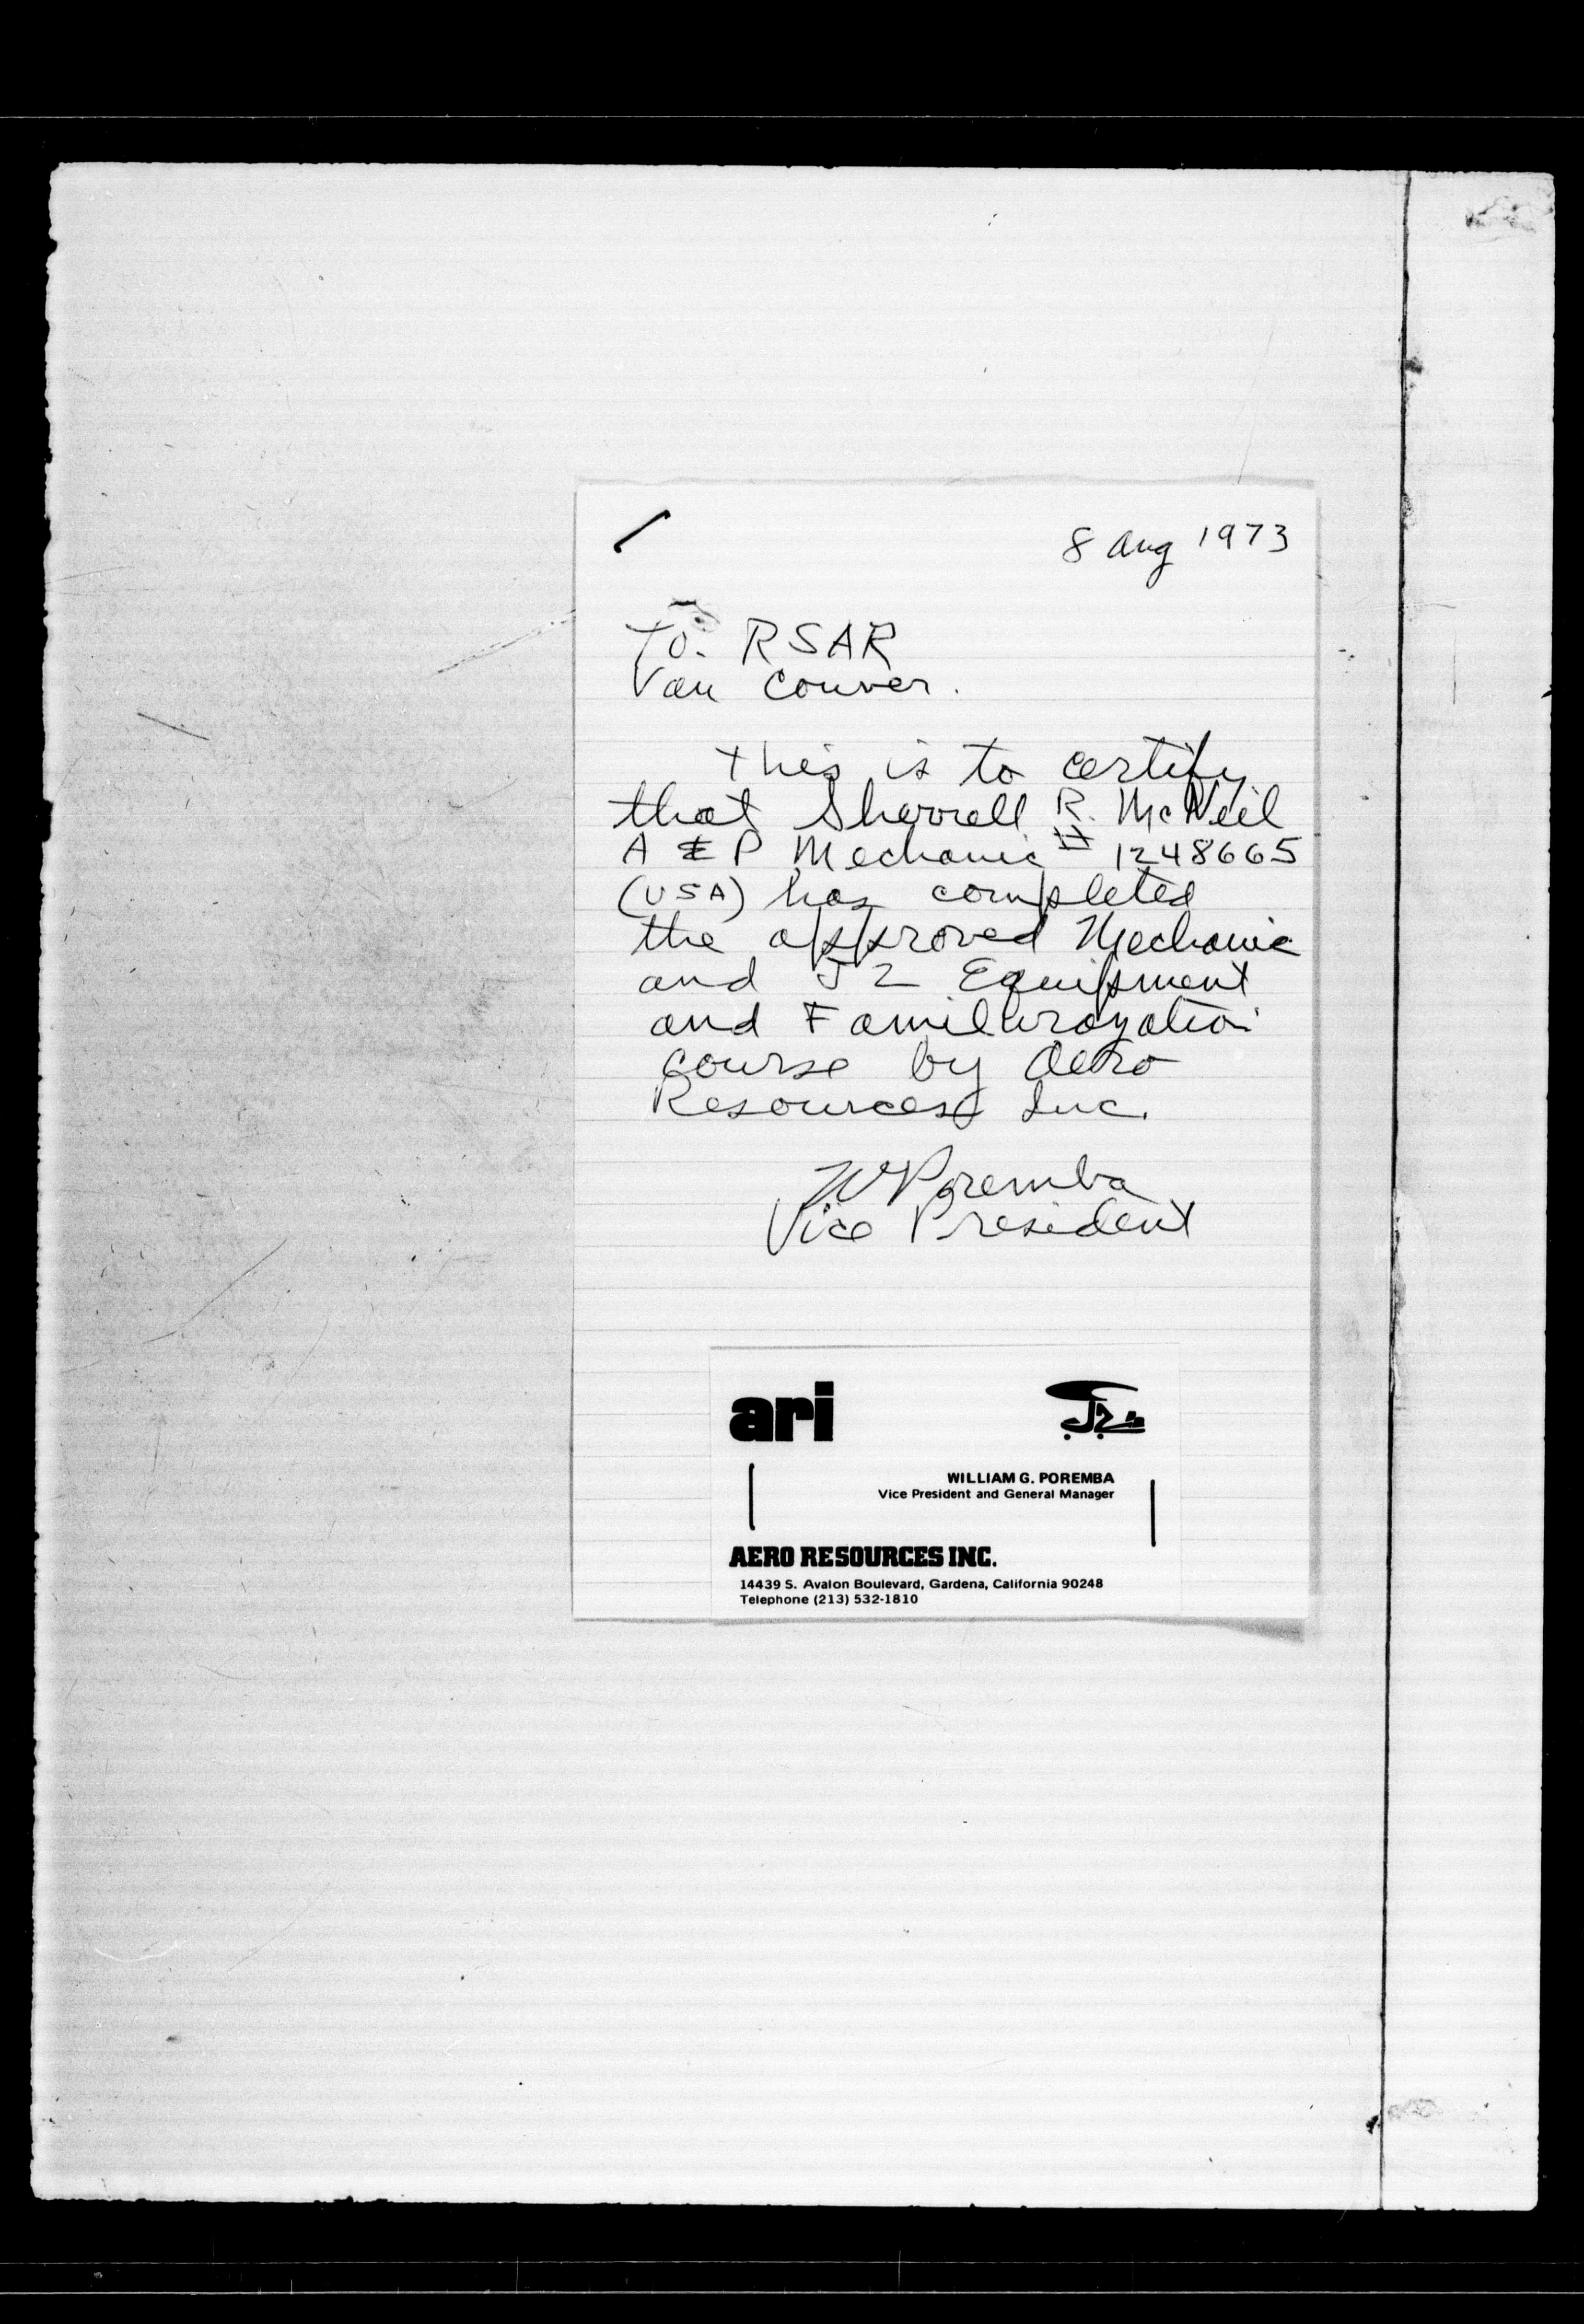 8 Aug 1973
To. RSAR
Van Couver.
This is to certify
that Sherrell R. McNeil
A & P Mechanic # 1248665
(USA) has completed
the approved Mechanic
and J2 Equipment
and Familurazation
course by Aero
Resources Inc.
W Poremba
Vice President
ari
J2
WILLIAM G. POREMBA
Vice President and General Manager
AERO RESOURCES INC.
14439 S. Avalon Boulevard, Gardena, California 90248
Telephone (213) 532-1810